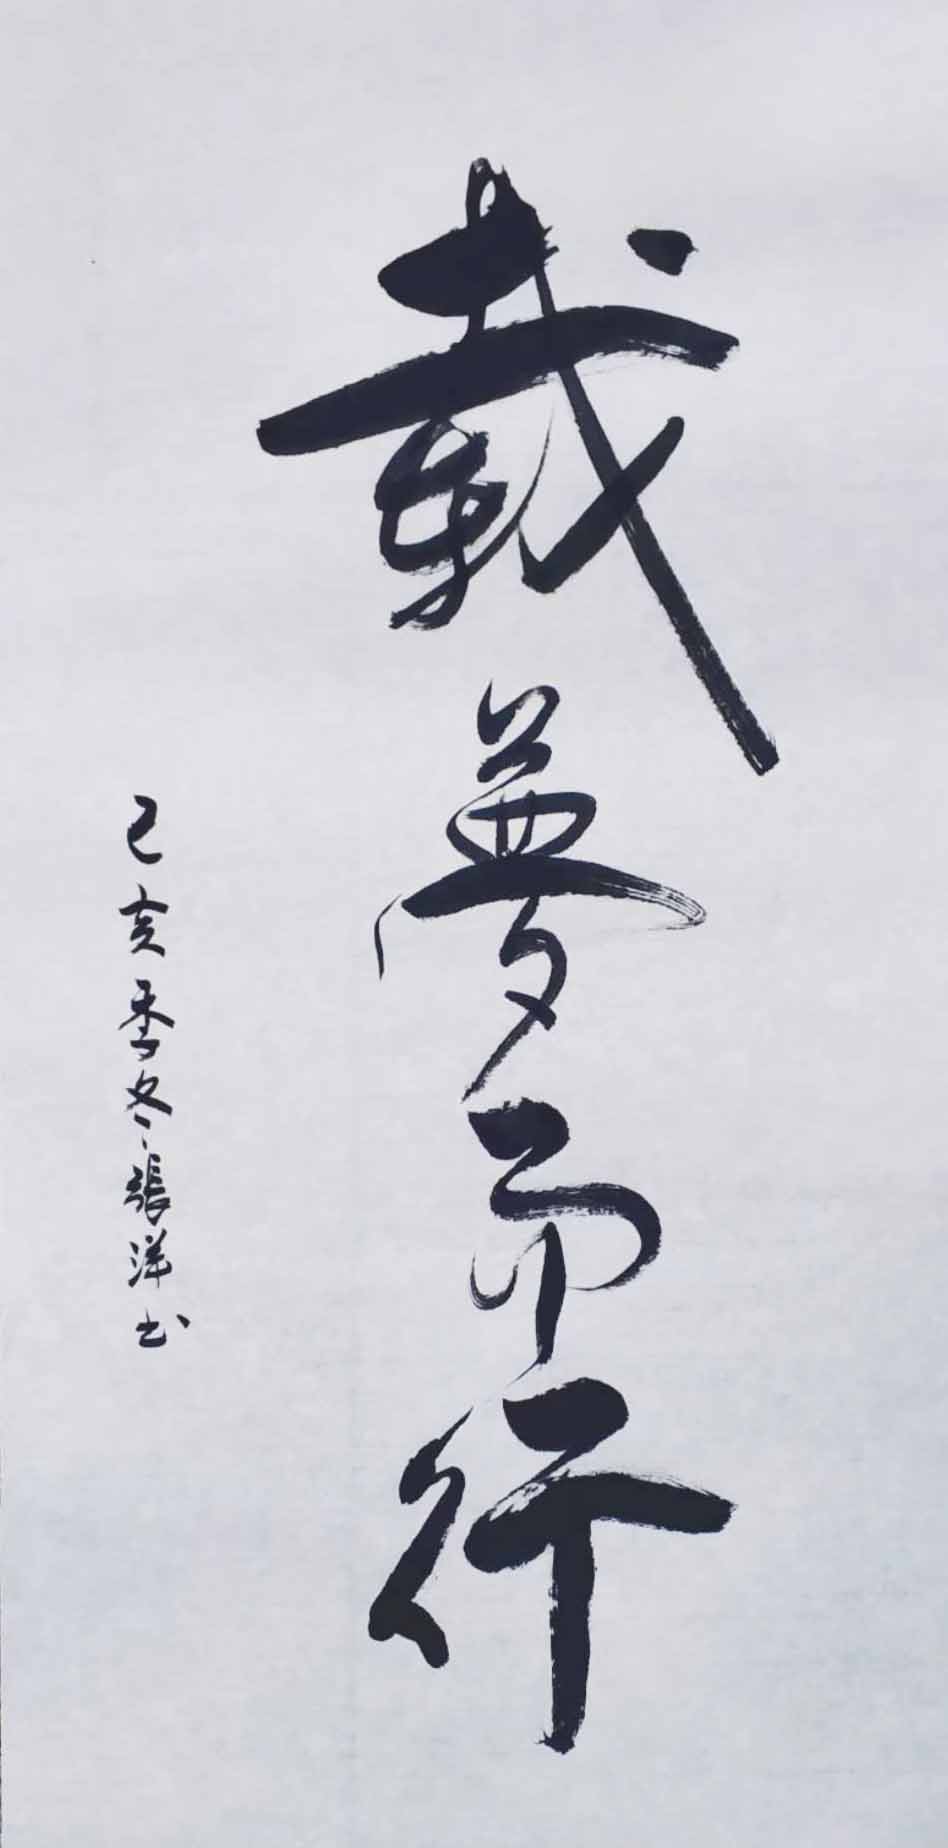 載夢而行
己亥季冬張洋书